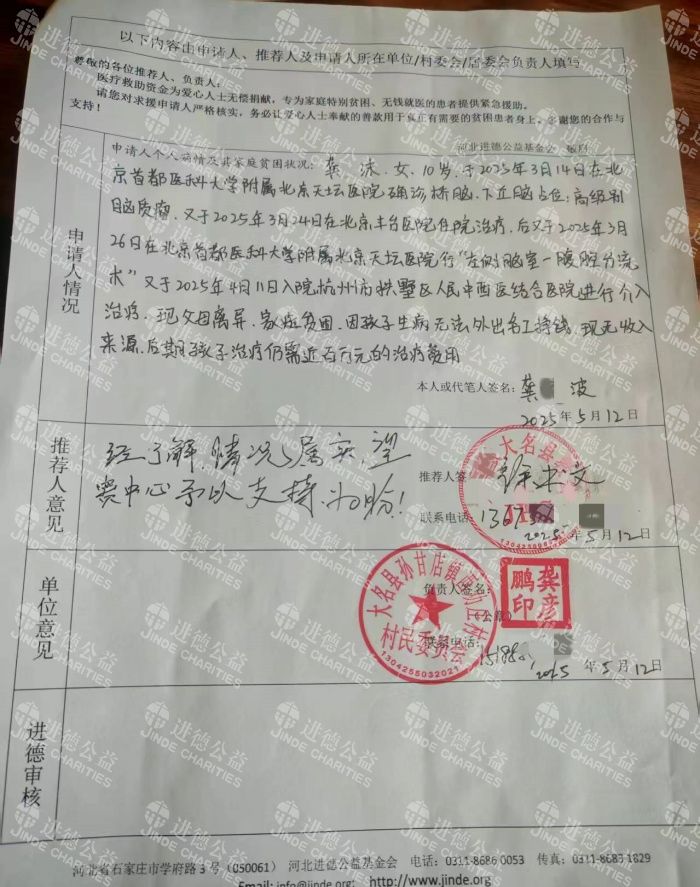 以下内容由申请人、推荐人及申请人所在单位/村委会/居委会负责人填写
尊敬的各位推荐人、负责人:
医疗救助资金为爱心人士无偿捐献,专为家庭特别贫困、无钱就医的患者提供紧急援助。
请您对求援申请人严格核实,务必让爱心人士奉献的善款用于真正有需要的贫困患者身上。感谢您的合作与
支持!
河北进德公益基金会
申请人情况
申请人个人病情及其家庭贫困状况:龚 沫,女,10岁,于2025年3月14日在北
京首都医科大学附属北京天坛医院确诊桥脑、下丘脑占位:高级别
脑质瘤,又于2025年3月24日在北京丰台医院住院治疗,后又于2025年3月
26日在北京首都医科大学附属北京天坛医院行“左侧脑室—腹腔分流
术”又于2025年4月11日入院杭州市拱墅区人民中西医结合医院进行介入
治疗,现父母离异,家庭贫困,因孩子生病无法外出务工挣钱,现无收入
来源,后期孩子治疗仍需近百万元的治疗费用
本人或代笔人签名:龚 波
2025年5月12日
推荐人意见
经了解,情况属实,望
贵中心予以支持为盼!
推荐人签
徐书文
大名县
联系电话:1367
2025年5月12日
单位意见
负责人签名:
龚彦鹏印
(公章)
大名县孙甘店镇
村民委员会
1304255032021
联系电话:
2025年5月12日
进德审核
河北省石家庄市学府路3号(050061) 河北进德公益基金会 电话:0311-8686 0053 传真:0311-8683 1829
Email: info@jinde.org http://www.jinde.org
进德公益
JINDE CHARITIES